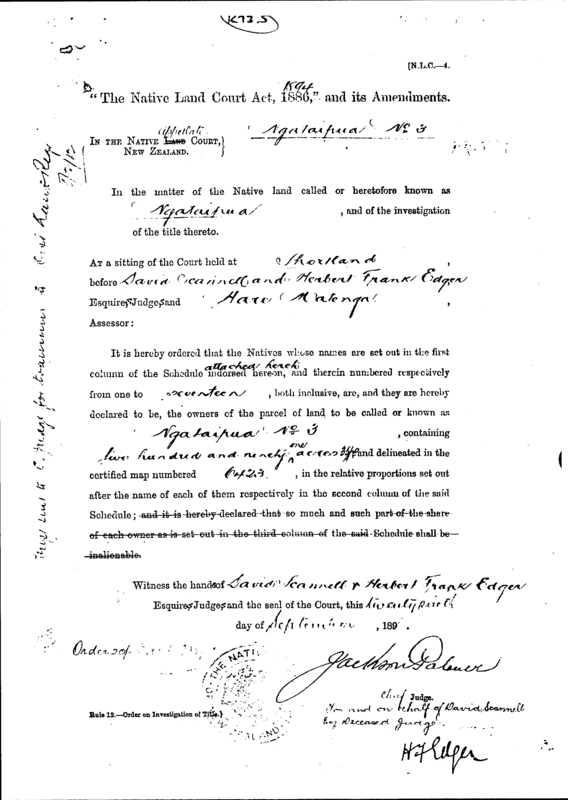 K73.5
[N.L.C.—4.
1894
"The Native Land Court Act, 1886," and its Amendments.
appellate
In the Native Land Court,}
New Zealand.
Ngataipua No 3
In the matter of the Native land called or heretofore known as
Ngataipua , and of the investigation
of the title thereto.
At a sitting of the Court held at Shortland ,
before David Scannell and Herbert Frank Edger
Esquires, Judges, and Hare Matenga ,
Assessor:
It is hereby ordered that the Natives whose names are set out in the first
attached hereto
column of the Schedule indorsed hereon, and therein numbered respectively
from one to seventeen , both inclusive, are, and they are hereby
declared to be, the owners of the parcel of land to be called or known as
Ngataipua No 3 , containing
one
two hundred and ninety acres and delineated in the
certified map numbered 6423 , in the relative proportions set out
after the name of each of them respectively in the second column of the said
Schedule; and it is hereby declared that so much and such part of the share
of each owner as is set out in the third column of the said Schedule shall be
inalienable.
Witness the hands of David Scannell & Herbert Frank Edger
Esquires, Judges, and the seal of the Court, this twenty sixth
day of September , 189 .
Orders of
Jackson Palmer
Chief Judge.
For and on behalf of David Scannell
Esq Deceased Judge
Rule 12.—Order on Investigation of Title.}
H F Edger